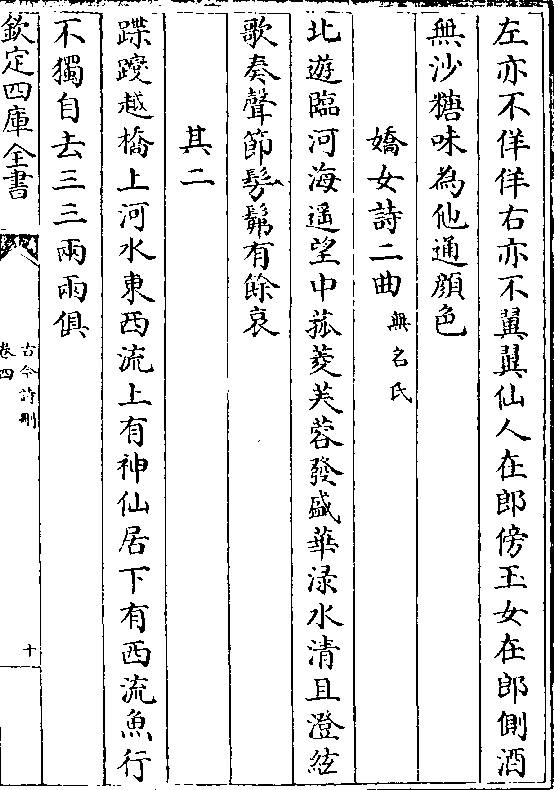 左亦不佯佯右亦不翼翼仙人在郎傍玉女在郎側酒
無沙糖味為他通顔色
嬌女詩二曲 無名氏
北遊臨河海遥望中菰菱芙蓉發盛華渌水清且澄絃
歌奏聲節髣髴有餘哀
其二
蹀躞越橋上河水東西流上有神仙居下有西流魚行
不獨自去三三兩兩俱
欽定四庫全書
古今詩刪
卷四
十